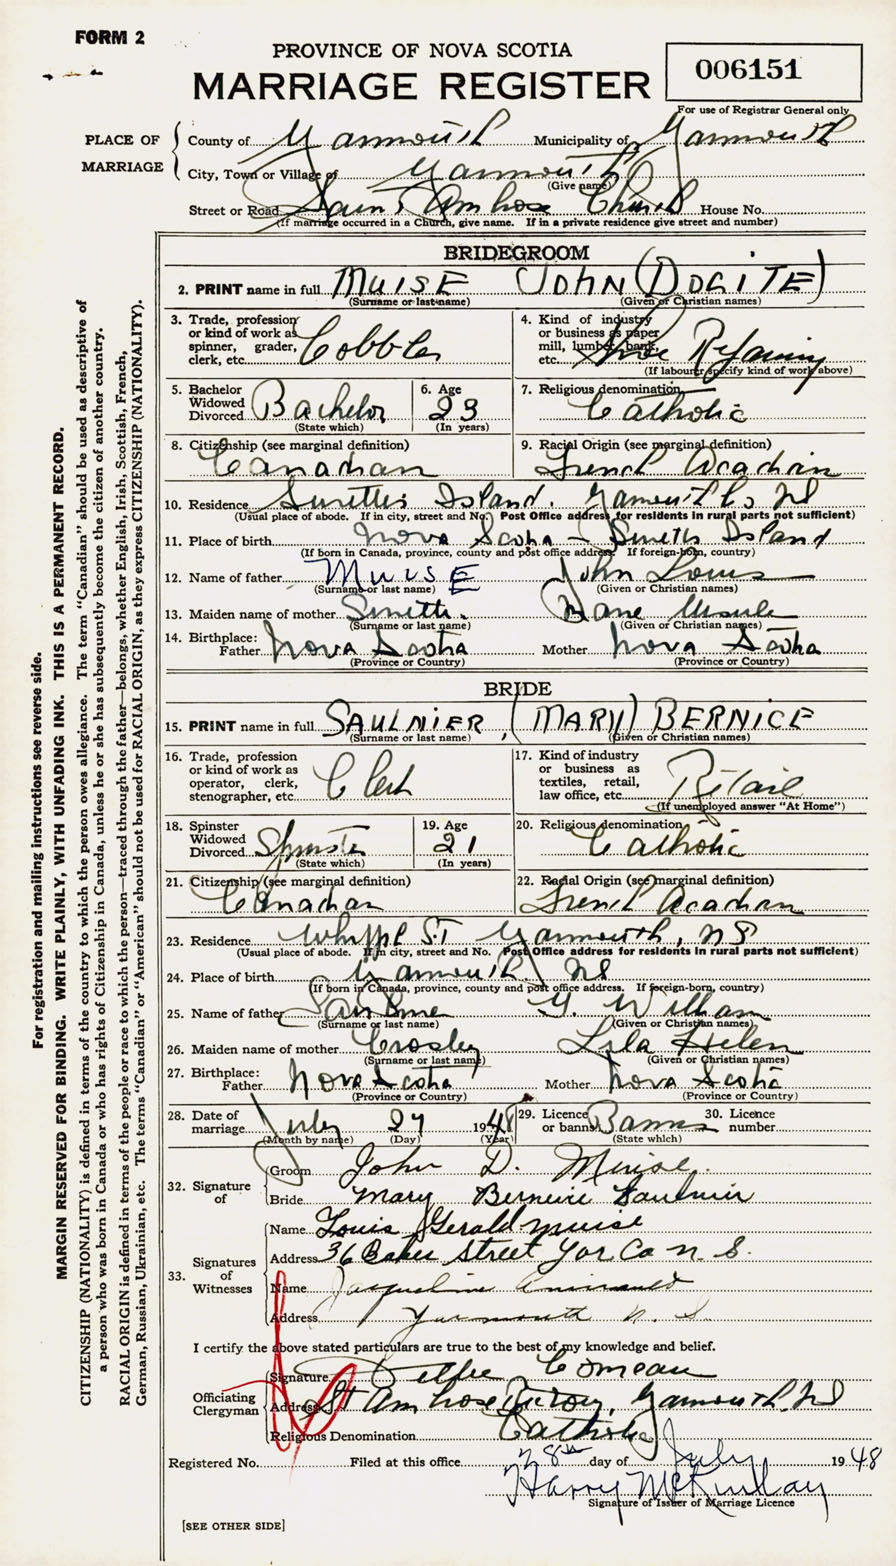 FORM 2
PROVINCE OF NOVA SCOTIA
MARRIAGE REGISTER
006151
For use of Registrar General only
PLACE OF MARRIAGE
County of Yarmouth Municipality of Yarmouth
City, Town or Village of Yarmouth
(Give name)
Street or Road Saint Ambrose Church House No.
(If marriage occurred in a Church, give name. If in a private residence give street and number)
BRIDEGROOM
2. PRINT name in full MUISE JOHN (DOGITE)
(Surname or last name) (Given or Christian names)
3. Trade, profession or kind of work as spinner, grader, clerk, etc. Cobbler
4. Kind of industry or business as paper mill, lumber, bank, etc. Shoe Repairing
(If labourer specify kind of work above)
5. Bachelor Widowed Divorced Bachelor
(State which)
6. Age 23
(In years)
7. Religious denomination Catholic
8. Citizenship (see marginal definition) Canadian
9. Racial Origin (see marginal definition) French Acadian
10. Residence Surettes Island. Yarmouth Co, NS
(Usual place of abode. If in city, street and No. Post Office address for residents in rural parts not sufficient)
11. Place of birth Nova Scotia - Surettes Island
(If born in Canada, province, county and post office address. If foreign-born, country)
12. Name of father MUISE John Louis
(Surname or last name) (Given or Christian names)
13. Maiden name of mother Surette. Ursule
(Surname or last name) (Given or Christian names)
14. Birthplace:
Father Nova Scotia Mother Nova Scotia
(Province or Country) (Province or Country)
BRIDE
15. PRINT name in full SAULNIER, (MARY) BERNICE
(Surname or last name) (Given or Christian names)
16. Trade, profession or kind of work as operator, clerk, stenographer, etc. Clerk
17. Kind of industry or business as textiles, retail, law office, etc. Retail
(If unemployed answer "At Home")
18. Spinster Widowed Divorced Spinster
(State which)
19. Age 21
(In years)
20. Religious denomination Catholic
21. Citizenship (see marginal definition) Canadian
22. Racial Origin (see marginal definition) French Acadian
23. Residence Whipple ST Yarmouth, NS
(Usual place of abode. If in city, street and No. Post Office address for residents in rural parts not sufficient)
24. Place of birth Yarmouth NS
(If born in Canada, province, county and post office address. If foreign-born, country)
25. Name of father William
(Surname or last name) (Given or Christian names)
26. Maiden name of mother Crosby Lila Helen
(Surname or last name) (Given or Christian names)
27. Birthplace:
Father Nova Scotia Mother Nova Scotia
(Province or Country) (Province or Country)
28. Date of marriage July 27 1948
(Month by name) (Day) (Year)
29. Licence or banns Banns
(State which)
30. Licence number
32. Signature of
Groom John D. Muise.
Bride Mary Berneice Saulnier
33. Signatures of Witnesses
Name Louis Gerald Muise
Address 36 Baker Street Yar Co N. S.
Name Jacqueline Amirault
Address Yarmouth N. S.
I certify the above stated particulars are true to the best of my knowledge and belief.
Officiating Clergyman
Signature Comeau
Address St Ambrose Rectory, Yarmouth, NS
Religious Denomination Catholic
Registered No. Filed at this office 28th day of July 1948
Harry McKinlay
Signature of Issuer of Marriage Licence
[SEE OTHER SIDE]
For registration and mailing instructions see reverse side.
MARGIN RESERVED FOR BINDING. WRITE PLAINLY, WITH UNFADING INK. THIS IS A PERMANENT RECORD.
CITIZENSHIP (NATIONALITY) is defined in terms of the country to which the person owes allegiance. The term "Canadian" should be used as descriptive of
a person who was born in Canada or who has rights of Citizenship in Canada, unless he or she has subsequently become the citizen of another country.
RACIAL ORIGIN is defined in terms of the people or race to which the person—traced through the father—belongs, whether English, Irish, Scottish, French,
German, Russian, Ukrainian, etc. The terms "Canadian" or "American" should not be used for RACIAL ORIGIN, as they express CITIZENSHIP (NATIONALITY).